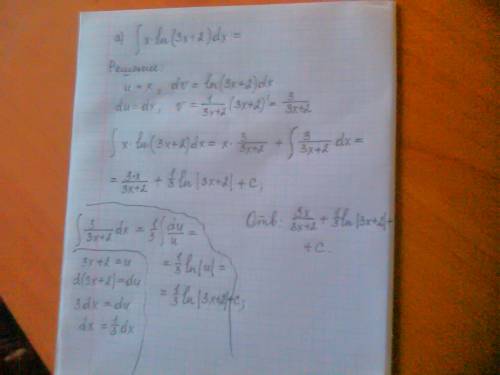 а) ∫x·ln(3x+2)dx =
Решение:
u = x, dv = ln(3x+2)dx
du = dx, v = 1/(3x+2)·(3x+2)' = 3/(3x+2)
∫x·ln(3x+2)dx = x·3/(3x+2) + ∫3/(3x+2) dx =
= 3·x/(3x+2) + 1/3 ln|3x+2| + C;
∫3/(3x+2) dx = 1/3 ∫du/u =
3x+2 = u
d(3x+2) = du
3dx = du
dx = 1/3 dx
= 1/3 ln|u| =
= 1/3 ln|3x+2| + C;
Отв: 3x/(3x+2) + 1/3 ln|3x+2| +
+ C.